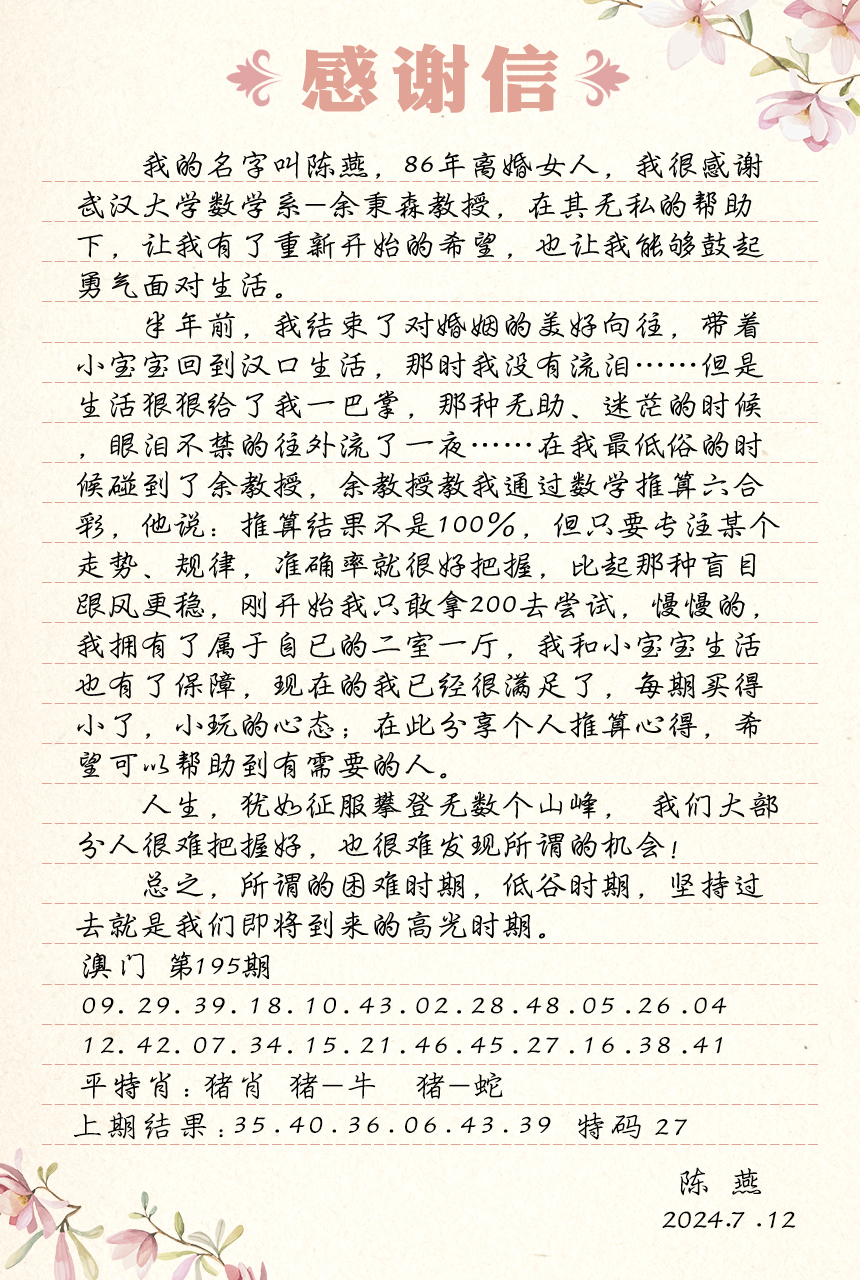 感谢信
我的名字叫陈燕，86年离婚女人，我很感谢
武汉大学数学系—余秉森教授，在其无私的帮助
下，让我有了重新开始的希望，也让我能够鼓起
勇气面对生活。
半年前，我结束了对婚姻的美好向往，带着
小宝宝回到汉口生活，那时我没有流泪……但是
生活狠狠给了我一巴掌，那种无助、迷茫的时候
，眼泪不禁的往外流了一夜……在我最低俗的时
候碰到了余教授，余教授教我通过数学推算六合
彩，他说：推算结果不是100%，但只要专注某个
走势、规律，准确率就很好把握，比起那种盲目
跟风更稳，刚开始我只敢拿200去尝试，慢慢的，
我拥有了属于自已的二室一厅，我和小宝宝生活
也有了保障，现在的我已经很满足了，每期买得
小了，小玩的心态；在此分享个人推算心得，希
望可以帮助到有需要的人。
人生，犹如征服攀登无数个山峰， 我们大部
分人很难把握好，也很难发现所谓的机会！
总之，所谓的困难时期，低谷时期，坚持过
去就是我们即将到来的高光时期。
澳门 第195期
09.29.39.18.10.43.02.28.48.05.26.04
12.42.07.34.15.21.46.45.27.16.38.41
平特肖：猪肖 猪—牛 猪—蛇
上期结果：35.40.36.06.43.39 特码 27
陈 燕
2024.7.12